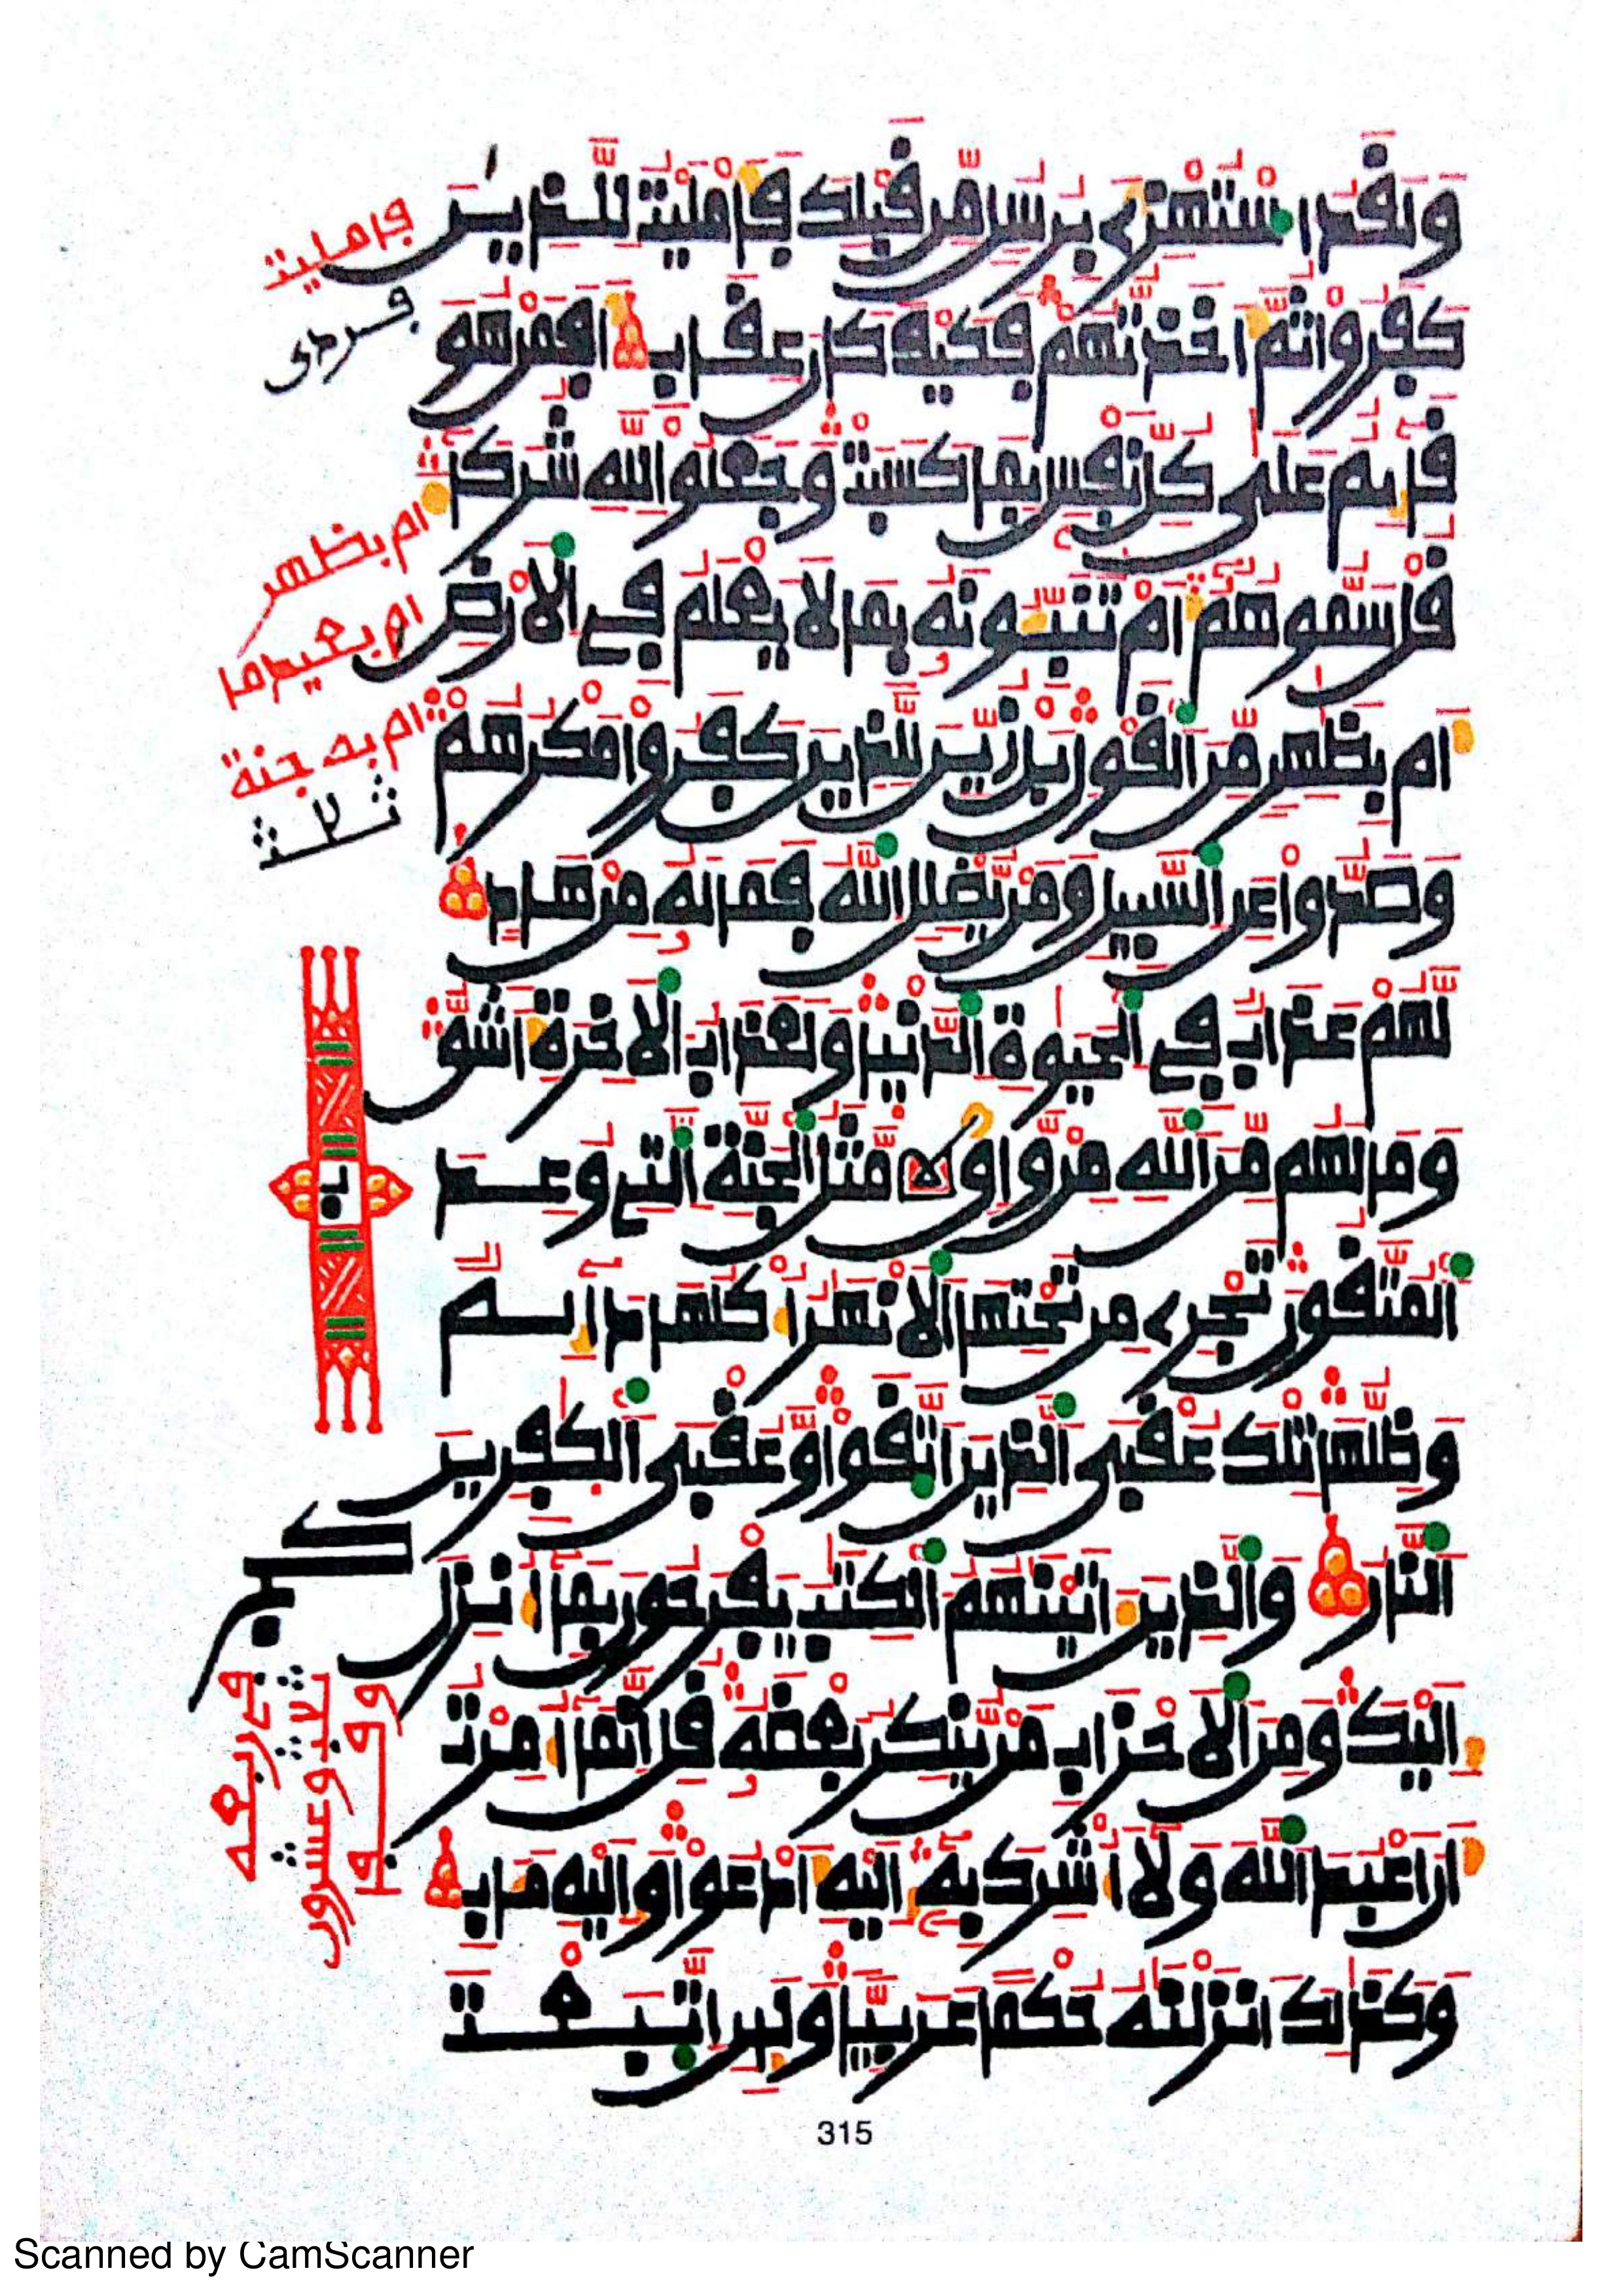 وَلَقَدِ اسْتُهْزِئَ بِرُسُلٍ مِّن قَبْلِكَ فَأَمْلَيْتُ لِلَّذِينَ
كَفَرُواْ ثُمَّ أَخَذتُّهُمْ فَكَيْفَ كَانَ عِقَابِ أَفَمَنْ هُوَ
قَآئِمٌ عَلَىٰ كُلِّ نَفْسٍ بِمَا كَسَبَتْ وَجَعَلُواْ لِلَّهِ شُرَكَآءَ
قُلْ سَمُّوهُمْ أَمْ تُنَبِّـُٔونَهُ بِمَا لَا يَعْلَمُ فِي الْأَرْضِ
أَم بِظَٰهِرٍ مِّنَ الْقَوْلِ بَلْ زُيِّنَ لِلَّذِينَ كَفَرُواْ مَكْرُهُمْ
وَصَدُّواْ عَنِ السَّبِيلِ وَمَن يُضْلِلِ اللَّهُ فَمَا لَهُ مِنْ هَادٍ
لَّهُمْ عَذَابٌ فِي الْحَيَوٰةِ الدُّنْيَا وَلَعَذَابُ الْأَخِرَةِ أَشَقُّ
وَمَا لَهُم مِّنَ اللَّهِ مِن وَاقٍ مَّثَلُ الْجَنَّةِ الَّتِي وُعِدَ
الْمُتَّقُونَ تَجْرِي مِن تَحْتِهَا الْأَنْهَٰرُ أُكْلُهَا دَآئِمٌ
وَظِلُّهَا تِلْكَ عُقْبَى الَّذِينَ اتَّقَواْ وَّعُقْبَى الْكَٰفِرِينَ
النَّارُ وَالَّذِينَ ءَاتَيْنَٰهُمُ الْكِتَٰبَ يَفْرَحُونَ بِمَآ أُنزِلَ
إِلَيْكَ وَمِنَ الْأَحْزَابِ مَن يُنكِرُ بَعْضَهُ قُلْ إِنَّمَآ أُمِرْتُ
أَنْ أَعْبُدَ اللَّهَ وَلَآ أُشْرِكَ بِهِ إِلَيْهِ أَدْعُواْ وَإِلَيْهِ مَـَٔابِ
وَكَذَٰلِكَ أَنزَلْنَٰهُ حُكْمًا عَرَبِيًّا وَلَئِنِ اتَّبَعْتَ
فأمليت
فردى
أم بظهر
أم بعيد ما
أم به جنة
ثلاث
315
Scanned by CamScanner